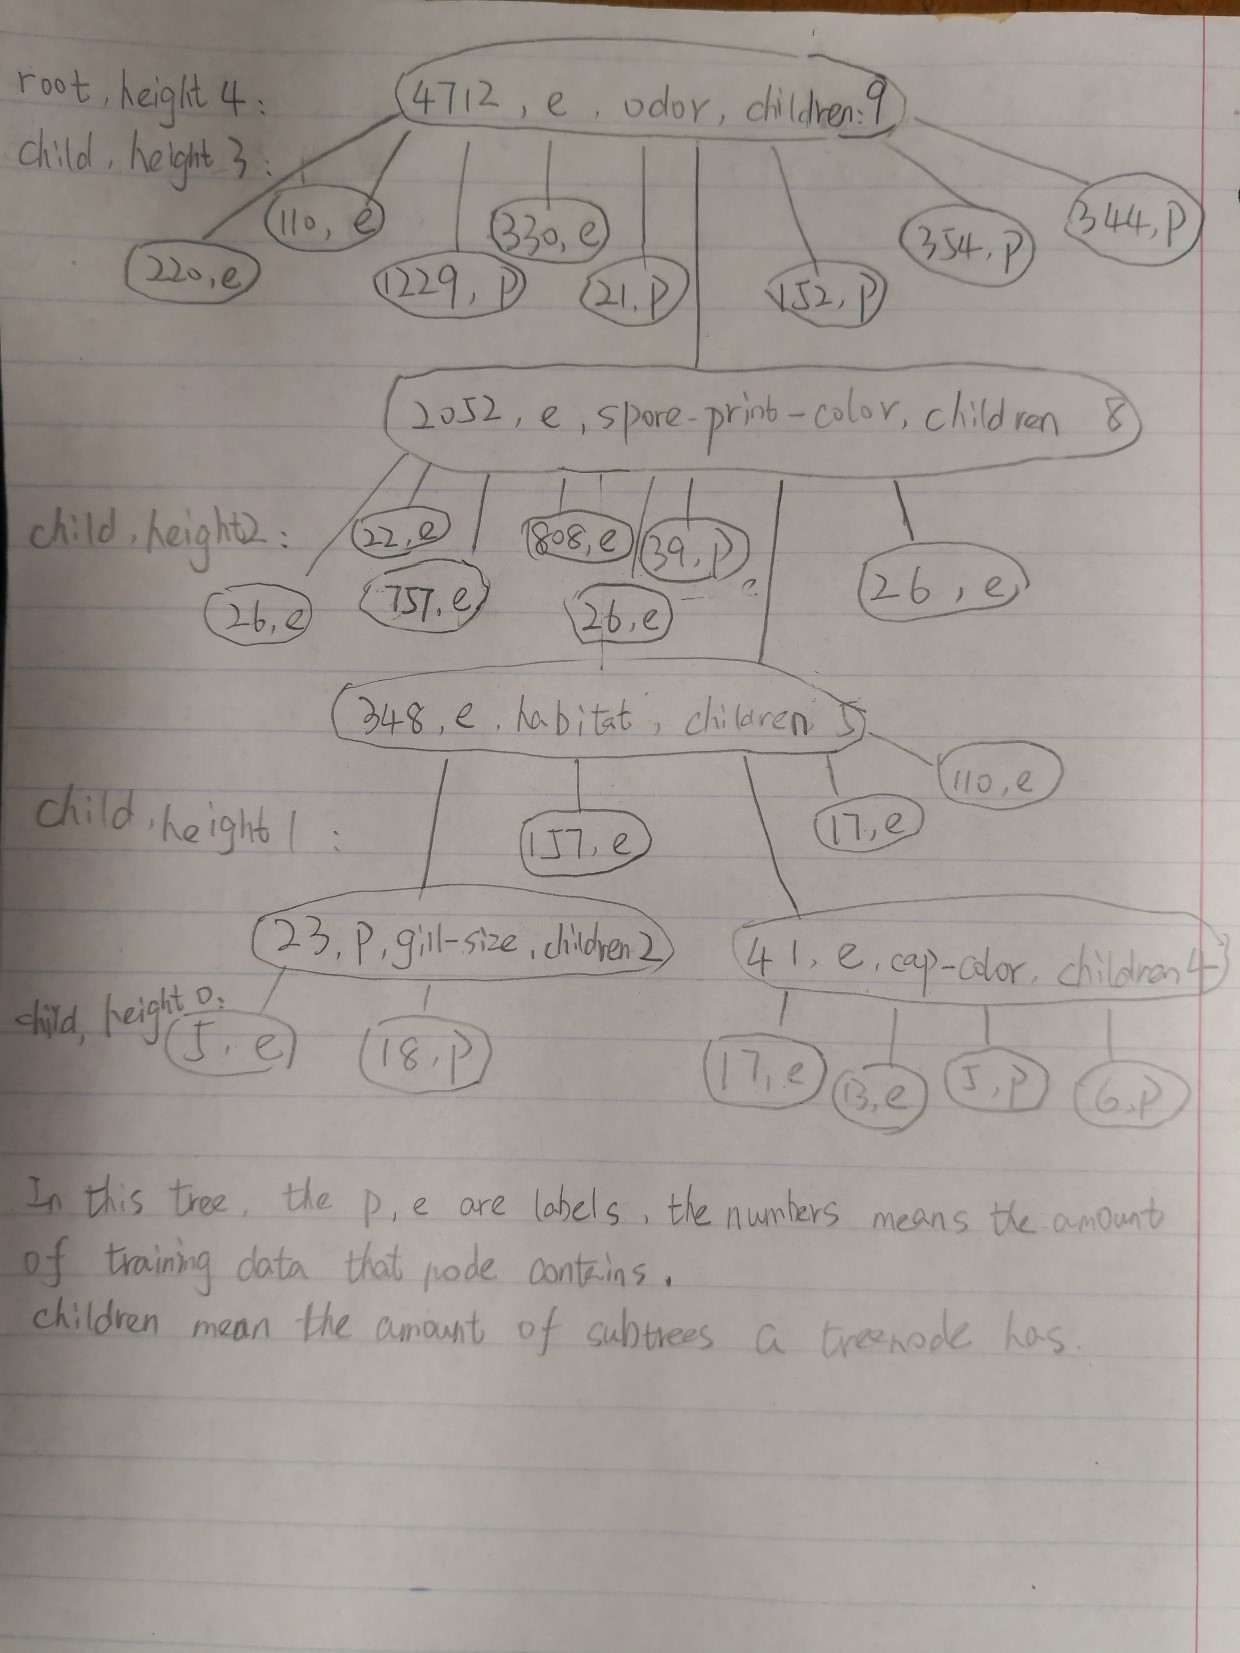 root, height 4:
4712, e, odor, children:9
child, height 3:
220, e
110, e
1229, p
330, e
21, p
152, p
354, p
344, p
2052, e, spore-print-color, children 8
child, height2:
26, e
22, e
757, e
808, e
26, e
39, p
26, e
348, e, habitat, children 5
child, height 1:
157, e
17, e
110, e
23, p, gill-size, children 2
41, e, cap-color, children 4
child, height 0:
5, e
18, p
17, e
13, e
5, p
6, p
In this tree, the p, e are labels, the numbers means the amount
of training data that node contains.
children mean the amount of subtrees a treenode has.